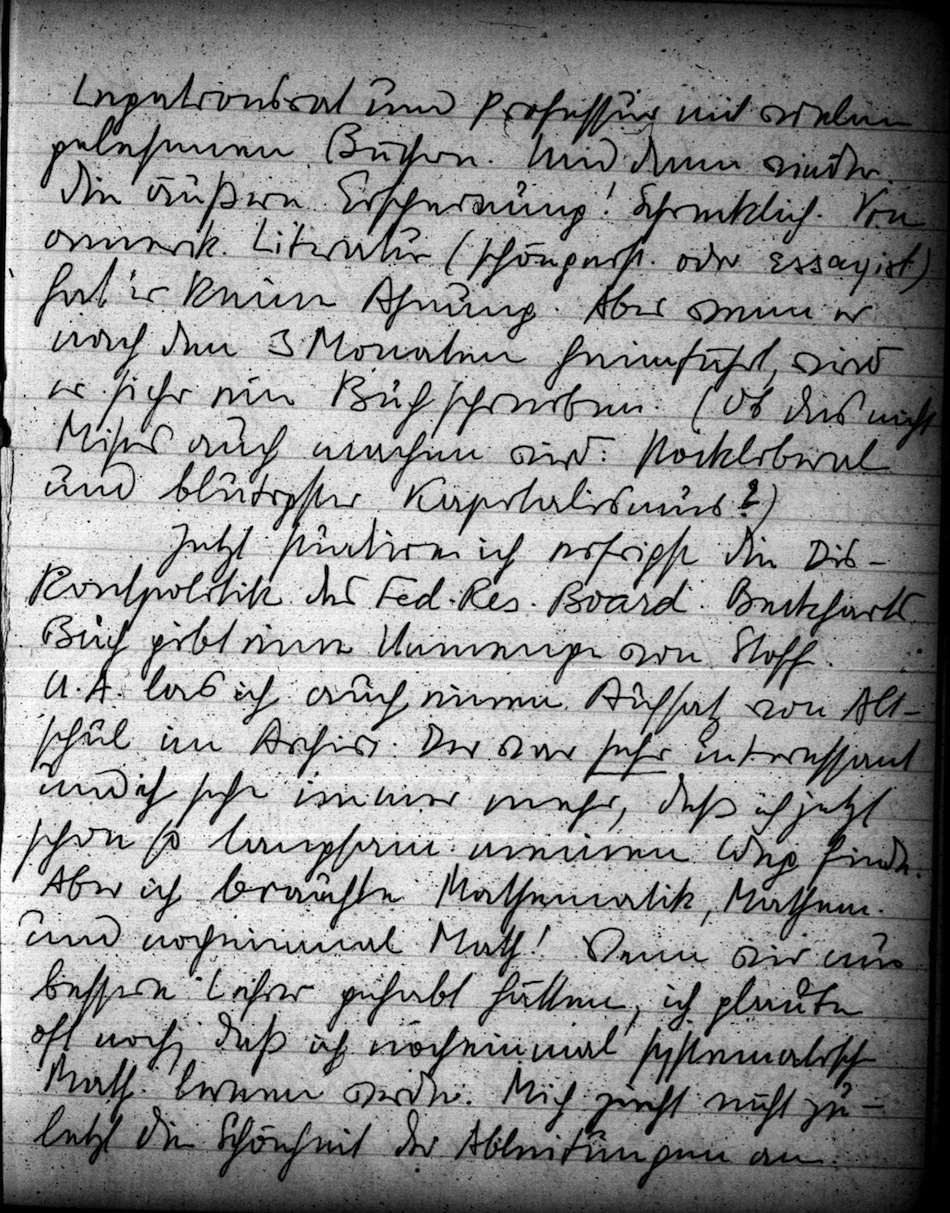 Legationsrat und Professur mit vielen
gelesenen Büchern. Und dann wieder
die äußere Erscheinung! Schrecklich. Von
amerik. Literatur (schöngeist. oder essayist)
hat er keine Ahnung. Aber wenn er
nach den 3 Monaten heimfährt, wird
er sicher ein Buch schreiben. (Ob dies nicht
Mises auch machen wird: stockliberal
und blutigster Kapitalismus?)
Jetzt studiere ich eifrigst die Dis-
kontpolitik des Fed. Res. Board. Beckharts
Buch gibt eine Unmenge von Stoff.
U. A. las ich auch einen Aufsatz von Alt-
schul im Archiv. Der war sehr interessant
und ich sehe immer mehr, daß ich jetzt
schon so langsam meinen Weg finde.
Aber ich brauchte Mathematik, Mathem.
und nocheinmal Math! Wenn wir nur
bessere Lehrer gehabt hätten, ich glaube
oft noch, daß ich nocheinmal systematisch
Math. lernen werde. Mich zieht nicht zu-
letzt die Schönheit der Ableitungen an.